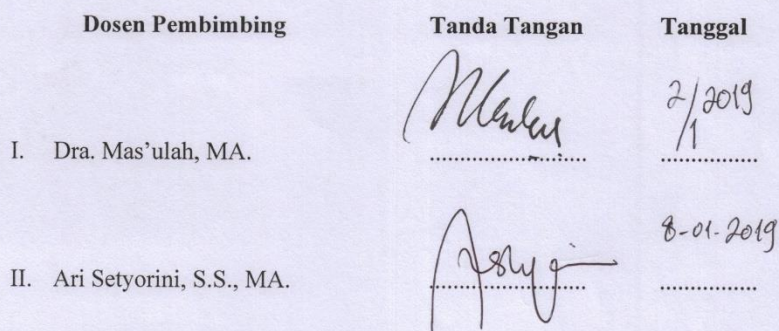 Dosen Pembimbing Tanda Tangan Tanggal
2/1 2019
I. Dra. Mas'ulah, MA. ................ ................
8-01-2019
II. Ari Setyorini, S.S., MA. ................ ................